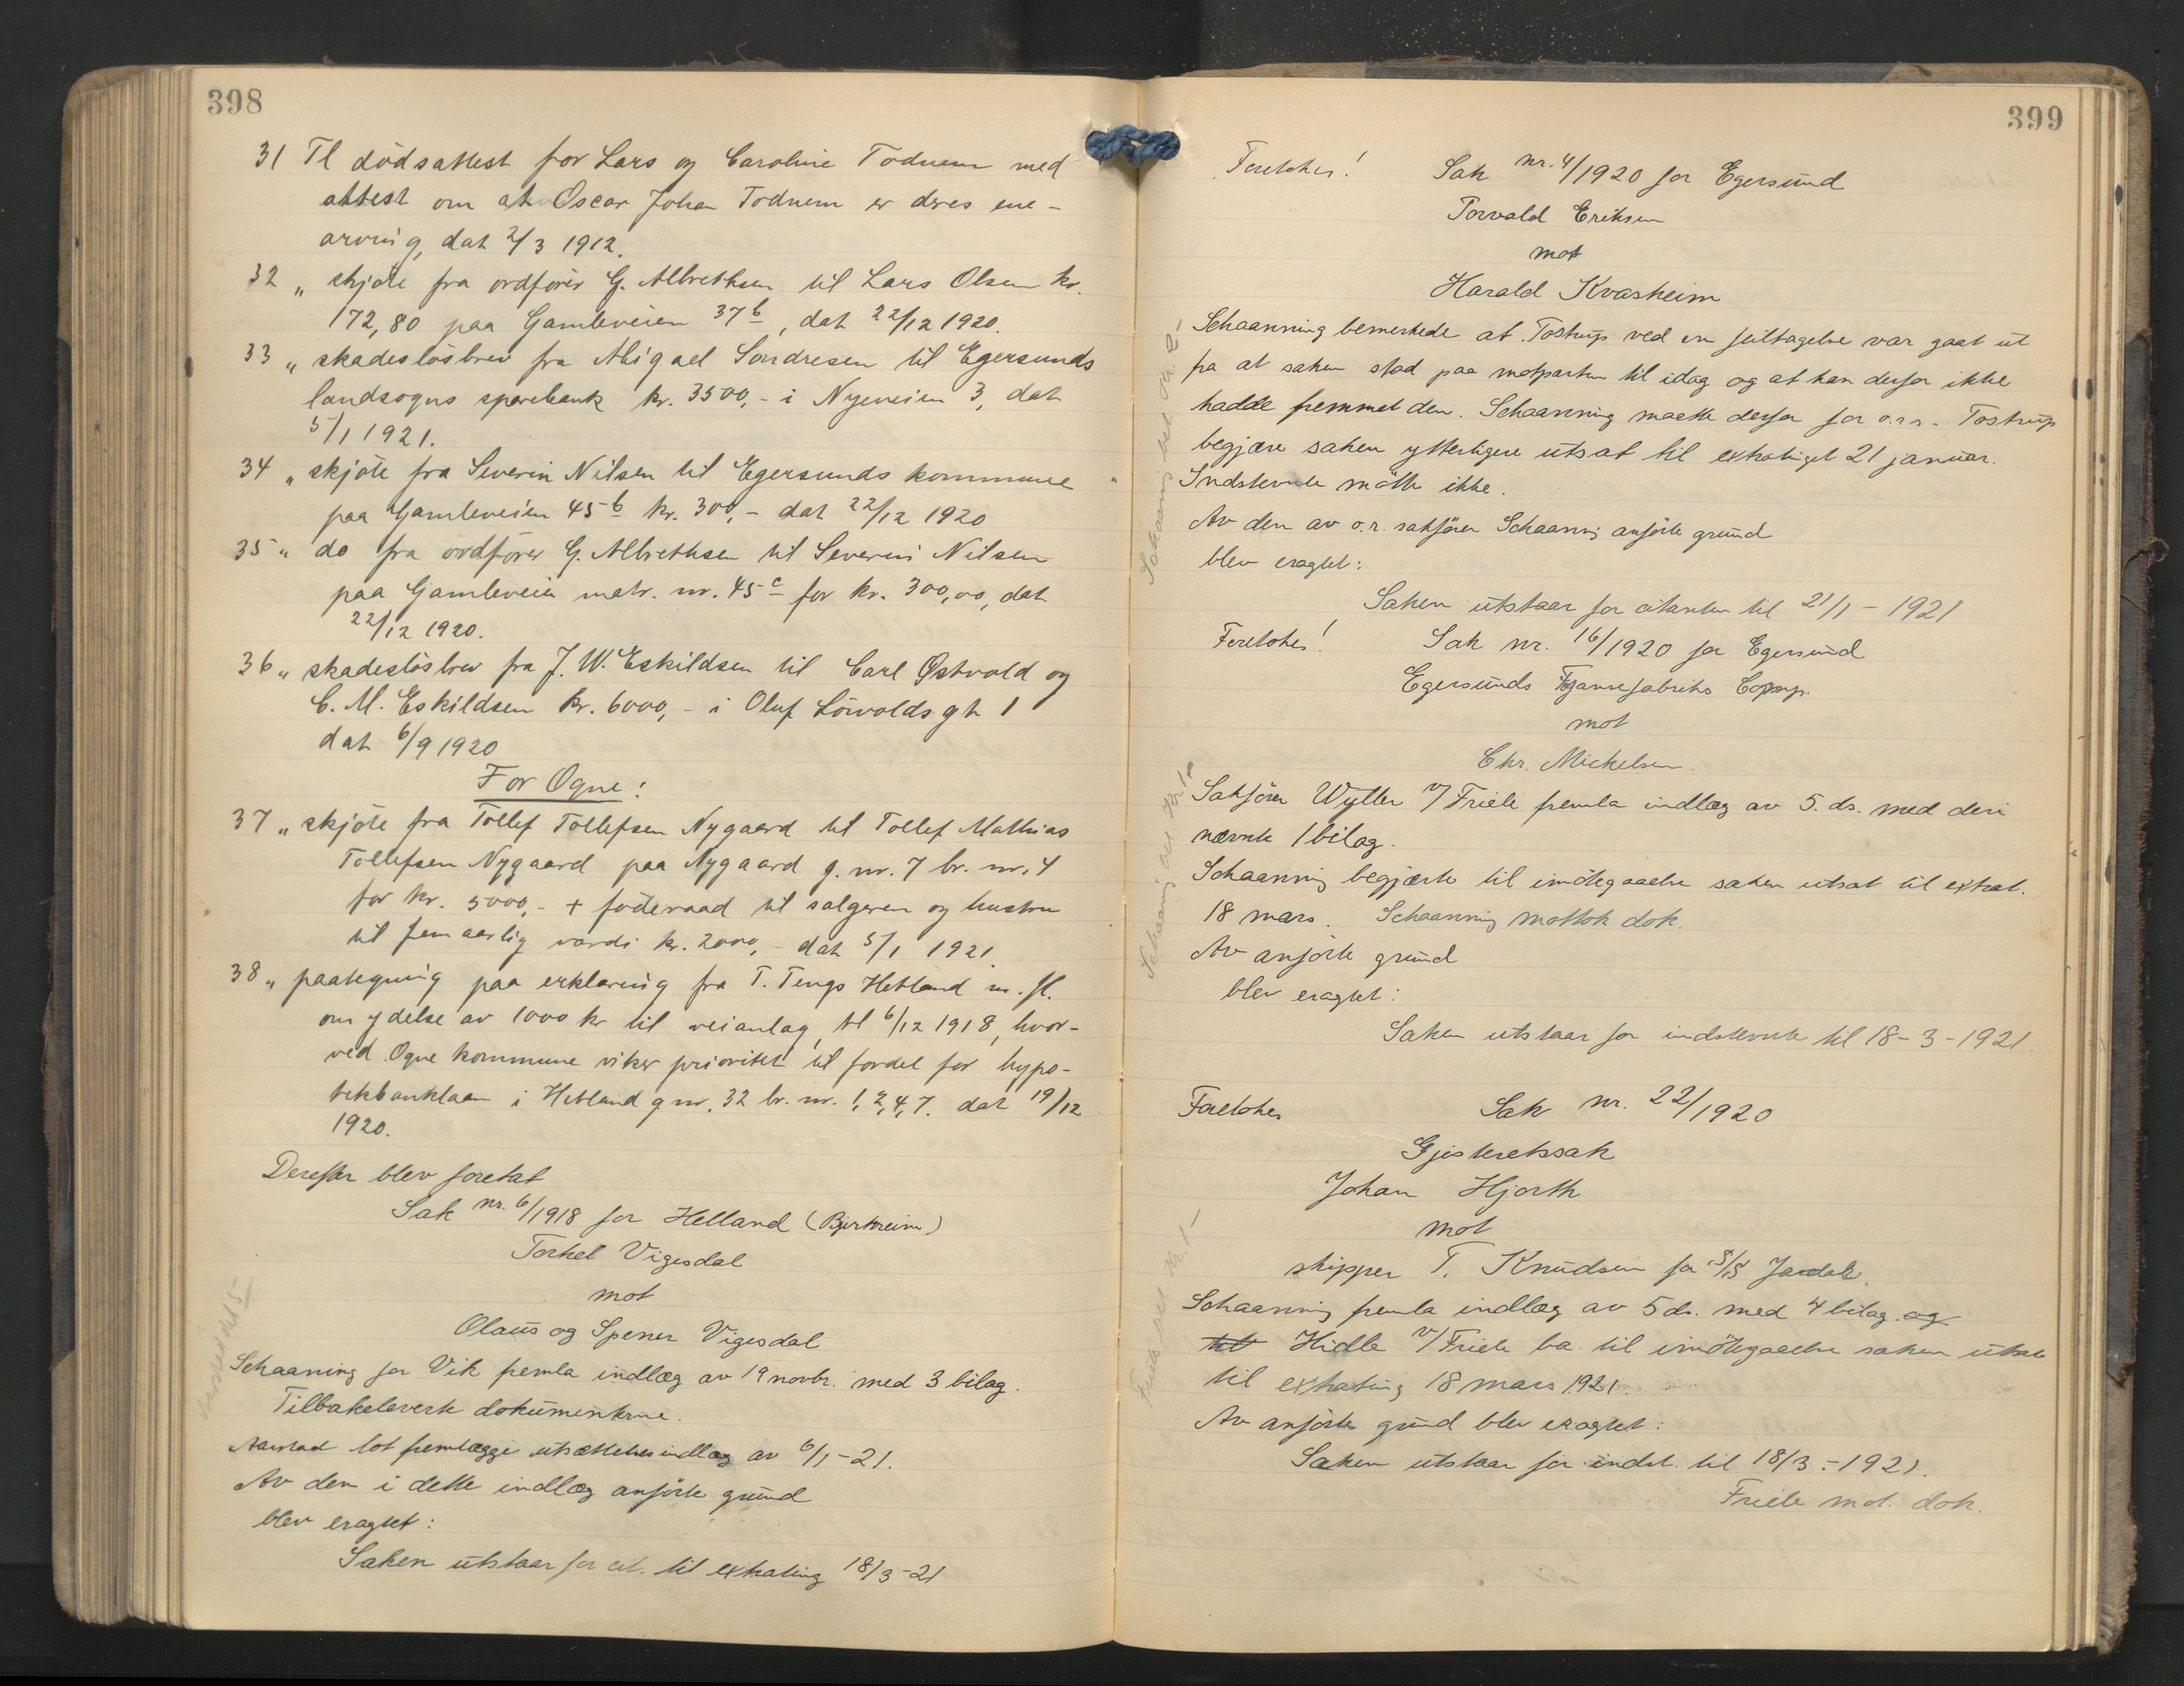 398
31 Tl dödsattest for Lars og Caroline Todnem med
attest om at Oscar Johan Todnem er deres ene-
arving, dat 2/3 1912.
32 " skjöte fra ordförer G. Albrethsen til Lars Olsen kr.
172,80 paa Gamleveien 37 b, dat 22/12 1920.
33 " skadeslösbrev fra Abigael Sondresen til Egersunds
landsogns sparebank kr. 3500,- i Nyeveien 3, dat
5/1 1921.
34 " skjöte fra Severin Nilsen til Egersunds kommune
paa Gamleveien 45 b kr. 300,- dat 22/12 1920
35 " do fra ordförer G. Albrethsen til Severin Nilsen
paa Gamleveien matr. nr. 45 c for kr. 300,00, dat
22/12 1920.
36 " skadeslösbrev fra J. W. Eskildsen til Carl Østvold og
C. M. Eskildsen kr. 6000,- i Oluf Lövolds gt 1
dat 6/9 1920
For Ogne:
37 " skjöte fra Tollef Tollefsen Nygaard til Tollef Mathias
Tollefsen Nygaard paa Nygaard g. nr. 7 br. nr. 4
for kr. 5000,- + föderaad til sælgeren og hustru
til femaarlig værdi kr. 2000,- dat 5/1 1921.
38 " paategning paa erklæring fra T. Tengs Hetland m. fl.
om ydelse av 1000 kr til veianlæg, tl 6/12 1918, hvor-
ved Ogne kommune viker prioritet til fordel for hypo-
tekbanklaan i Hetland g nr. 32 br. nr. 1, 2, 4, 7. dat 19/12
1920.
Derefter blev foretat
Sak nr. 6/1918 for Helland (Bjerkreim)
Torkel Vigesdal
mot
Olaus og Spener Vigesdal
Schaaning for Vik fremla indlæg av 19 novbr. med 3 bilag.
Tilbakeleverte dokumenterne.
Aarstad lot fremlægge utsættelsesindlæg av 6/1-21.
Av den i dette indlæg anförte grund
blev eragtet:
Saken utstaar for cit. til extrating 18/3-21
399
Foretokes! Sak nr. 4/1920 for Egersund
Torvald Eriksen
mot
Harald Kvasheim
Schaanning bemerkede at Tostrup ved en feiltagelse var gaat ut
fra at saken stod paa motparten til idag og at han derfor ikke
hadde fremmet den. Schaanning maatte derfor for o.r.s. Tostrup
begjære saken ytterligere utsat til extratinget 21 januar.
Indstevnte mötte ikke.
Av den av o.r. sakförer Schaanning anförte grund
blev eragtet:
Saken utstaar for citanten til 21/1 - 1921
Foretokes! Sak nr. 16/1920 for Egersund
Egersunds Fajansefabriks Comp.
mot
Chr. Mickelsen.
Sakförer Wyller v/ Friele fremla indlæg av 5. ds. med deri
nævnte 1 bilag.
Schaanning begjærte til imötegaaelse saken utsat til extrat.
18 mars. Schaanning mottok dok.
Av anförte grund
blev eragtet:
Saken utstaar for indstevnte til 18-3-1921.
Foretokes Sak nr. 22/1920
Gjesteretssak
Johan Hjorth
mot
skipper T. Knudsen for S/S
Schaanning fremla indlæg av 5 ds. med 4 bilag og
Hidle v/ Friele ba til imötegaaelse saken utsat
til extrating 18 mars 1921.
Av anförte grund blev eragtet:
Saken utstaar for indst. til 18/3 - 1921.
Friele mot. dok.